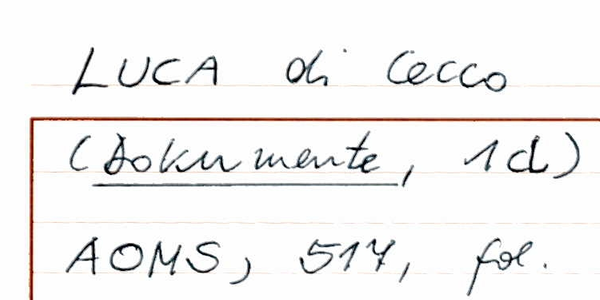 LUCA di Cecco
(Dokumente, 1d)
AOMS, 517, fol.